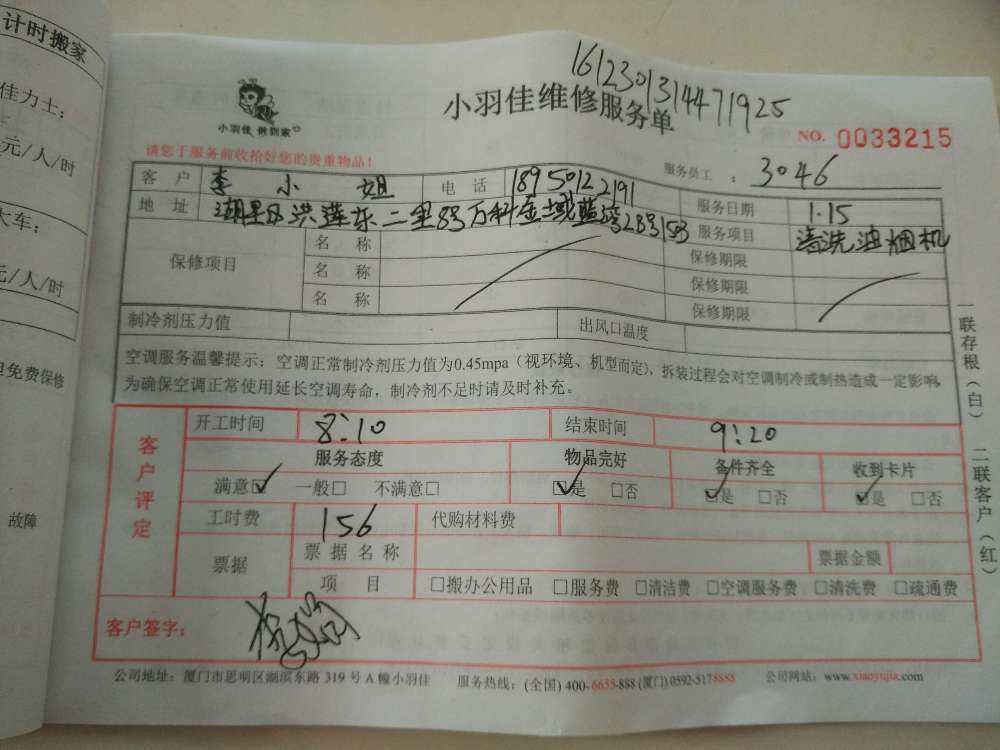 计时搬家
佳力士：
元/人/时
大车：
元/人/时
免费保修
故障
161230131447 1925
小羽佳 做到家
小羽佳维修服务单
NO. 0033215
请您于服务前收拾好您的贵重物品！
服务员工 ： 3046
客 户 李 小 姐 电 话 18950122191
服务日期 1.15
地 址 湖里区洪莲东二里8号万科金域蓝湾
服务项目 清洗油烟机
保修项目 名 称 保修期限
名 称 保修期限
名 称 保修期限
制冷剂压力值 出风口温度
空调服务温馨提示：空调正常制冷剂压力值为0.45mpa（视环境、机型而定），拆装过程会对空调制冷或制热造成一定影响，
为确保空调正常使用延长空调寿命，制冷剂不足时请及时补充。
一联存根（白） 二联客户（红）
客户评定
开工时间 8:10 结束时间 9:20
服务态度 物品完好 备件齐全 收到卡片
满意☑ 一般□ 不满意□ ☑是 □否 ☑是 □否 ☑是 □否
工时费 156 代购材料费
票据 票据名称 票据金额
项 目 □搬办公用品 □服务费 □清洁费 □空调服务费 □清洗费 □疏通费
客户签字：
公司地址：厦门市思明区湖滨东路 319 号 A 幢小羽佳 服务热线：(全国) 400-6655-888 (厦门) 0592-5178888 公司网站：www.xiaoyujia.com